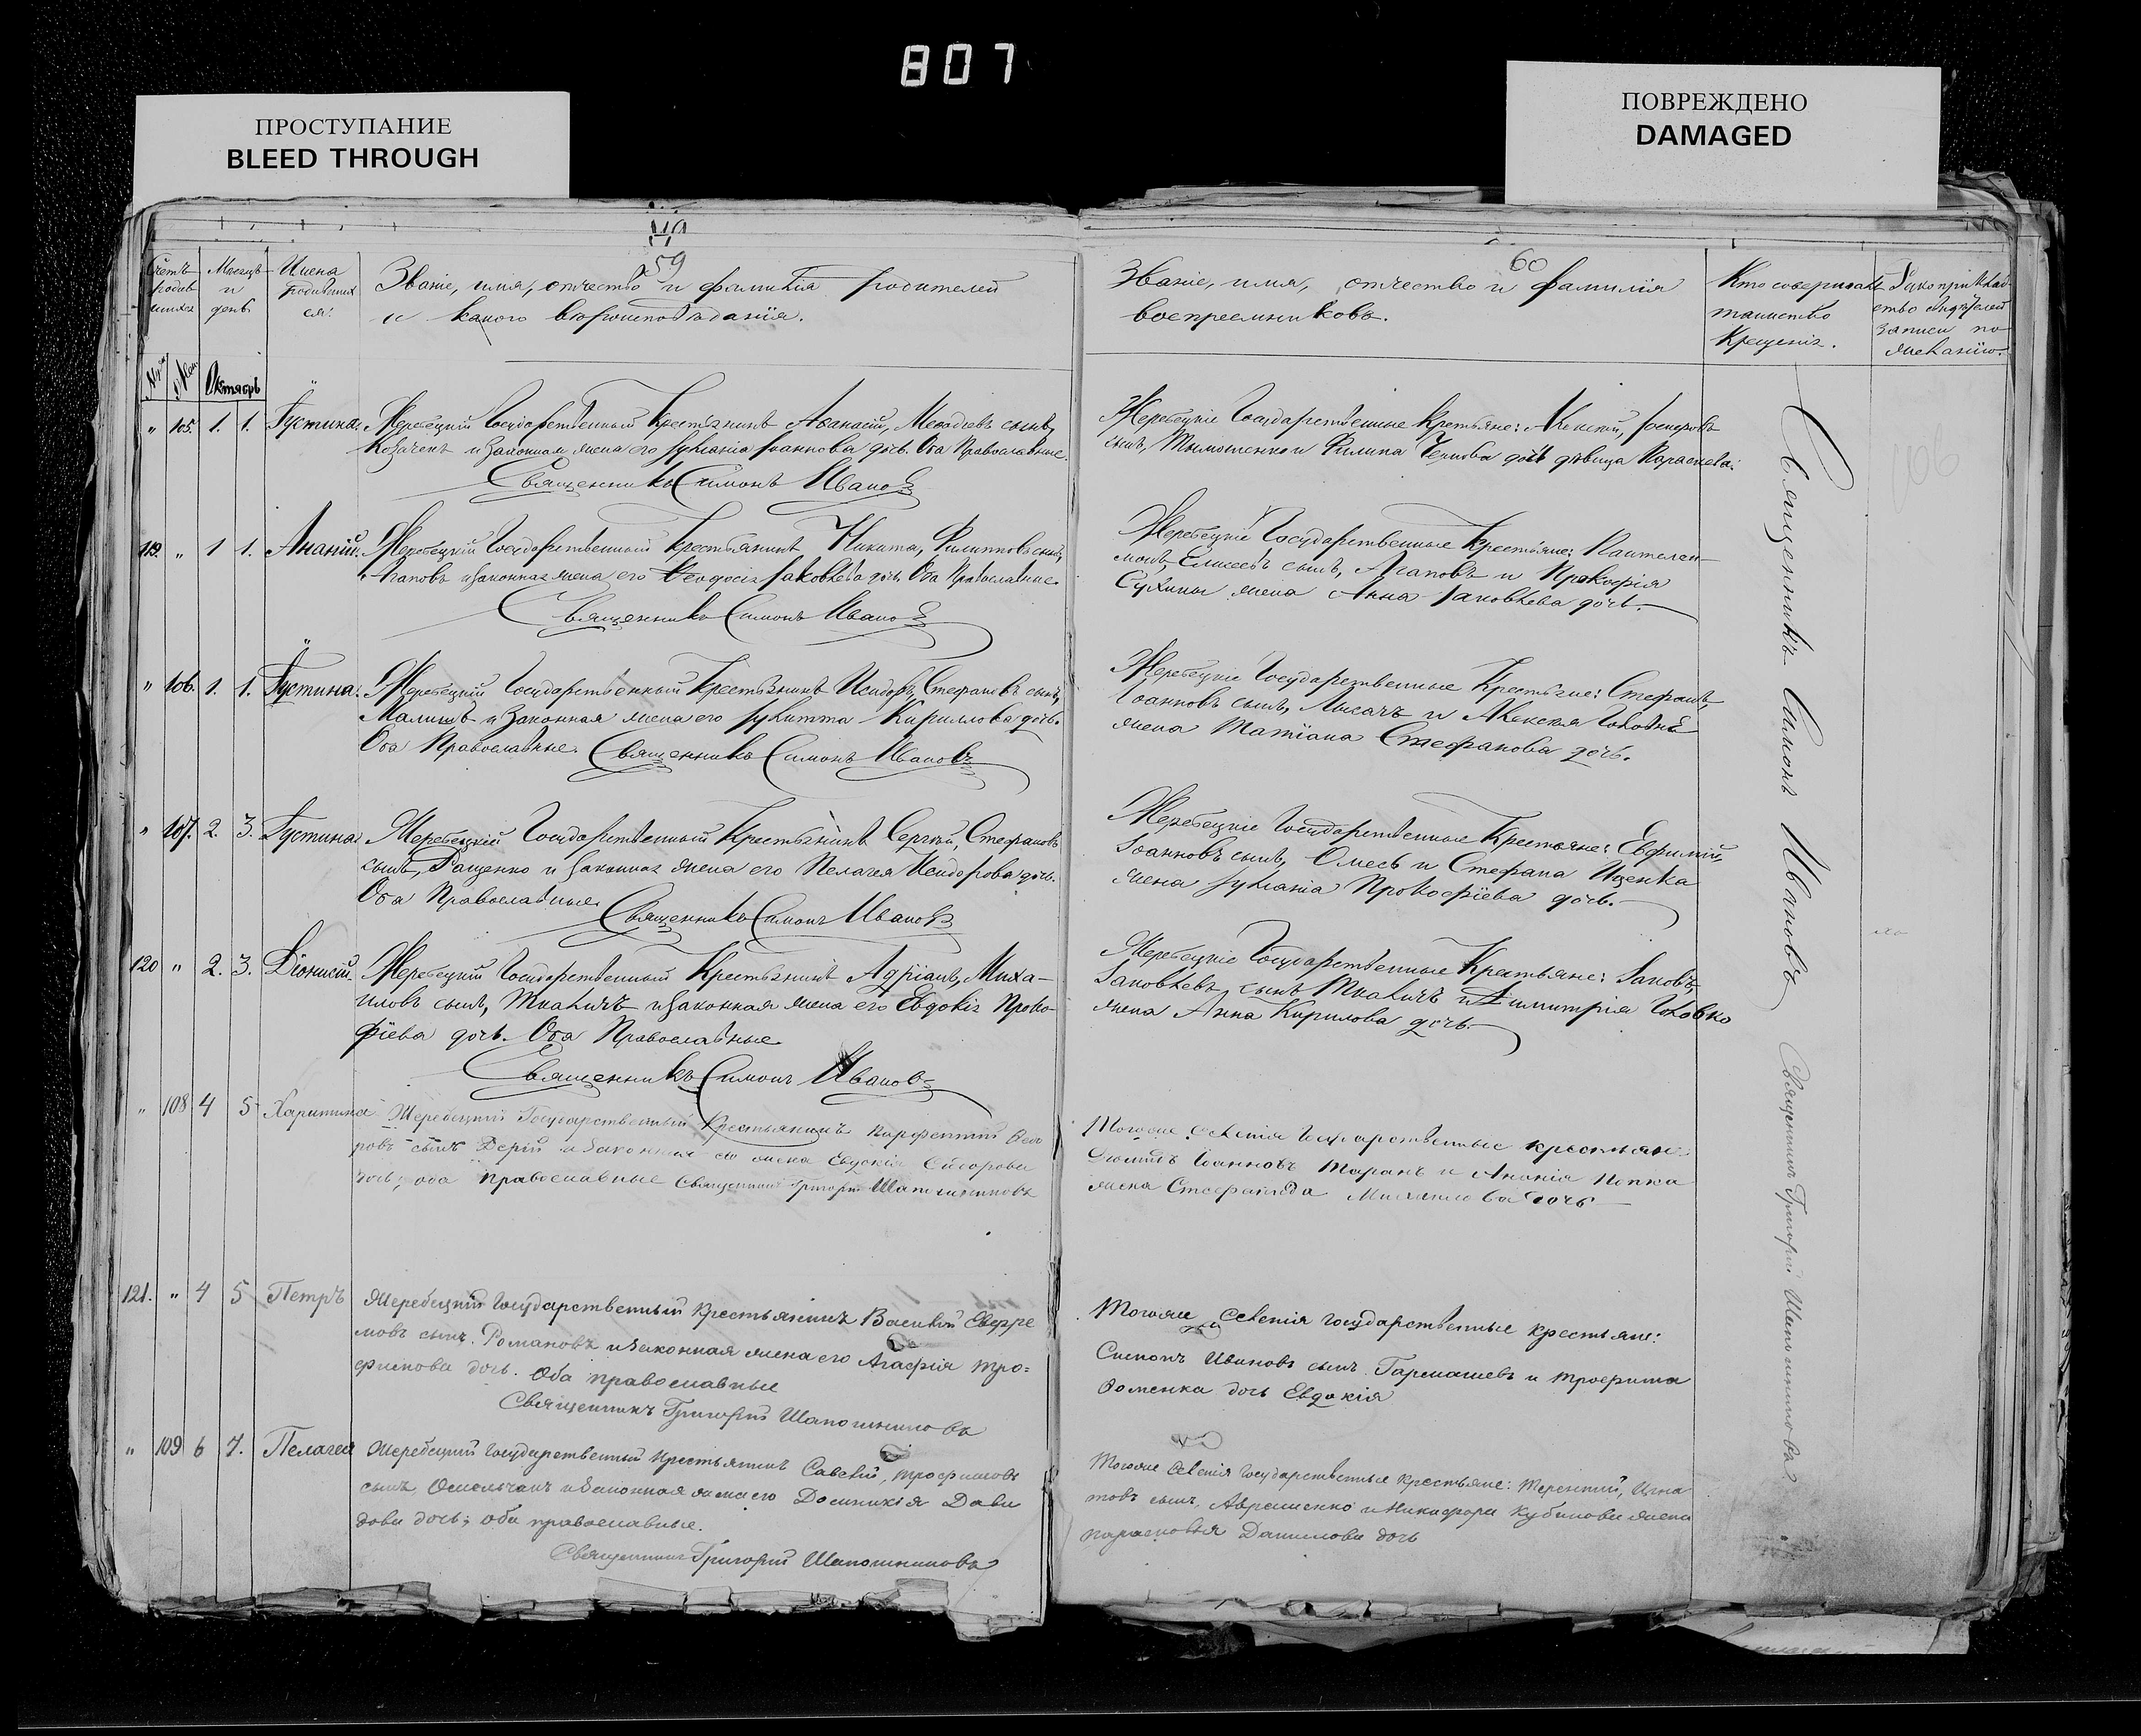 807
ПРОСТУПАНИЕ
BLEED THROUGH
ПОВРЕЖДЕНО
DAMAGED
59
Счетъ родив шихся
Мѣсяцъ и день
Имена родивших ся.
Званіе, имя, отчество и фамилія родителей
и какого вѣроисповѣданія.
Октябрь
" 105. 1. 1. Іустина. Жеребецкій Государственный крестьянинъ Аѳанасій, Меѳодіевъ сынъ,
Козаченъ и законная жена его Іуліанія Іоаннова дочь. Оба Православные.
Священникъ Симонъ Ивановъ
119. " 1 1. Ананій. Жеребецкій Государственный крестьянинъ Никита, Филипповъ сынъ,
Агаповъ и законная жена его Ѳеодосія Іаковлева дочь. Оба Православные.
Священникъ Симонъ Ивановъ
" 106. 1. 1. Іустина. Жеребецкій Государственный крестьянинъ Исидоръ, Стефановъ сынъ,
Малишъ и законная жена его Іулитта Кириллова дочь.
Оба Православные. Священникъ Симонъ Ивановъ
" 107. 2. 3. Іустина. Жеребецкій Государственный Крестьянинъ Сергій, Стефановъ
сынъ, Ращенко и законная жена его Пелагея Исидорова дочь.
Оба Православные. Священникъ Симонъ Ивановъ
120 " 2. 3. Діонисій. Жеребецкій Государственный Крестьянинъ Адріанъ, Миха-
иловъ сынъ, Ткаличъ и законная жена его Евдокія Проко-
фіева дочь. Оба Православные.
Священникъ Симонъ Ивановъ
" 108 4 5 Харитина Жеребецкій Государственный Крестьянинъ Парфентій
ровъ сынъ и законная его жена Евдокія Сидорова
дочь; оба православные Священникъ Григорій Шапошниковъ
121. " 4 5 Петръ Жеребецкій Государственный Крестьянинъ Василій Ефре
мовъ сынъ. Романовъ и законная жена его Агафія Тро=
фимова дочь. Оба православные
Священникъ Григорій Шапошниковъ
" 109 6 7. Пелагея Жеребецкій Государственный крестьянинъ Савелій, Трофимовъ
сынъ, Омельчанъ и законная жена его Домникія Дави
дова дочь; оба православные.
Священникъ Григорій Шапошниковъ
60
Званіе, имя, отчество и фамилія
воспреемниковъ.
Кто совершалъ
таинство
Крещенія.
Рукоприклад-
ство свидѣтелей
записи по
желанію.
Жеребецкіе Государственные крестьяне: Алексій, Іосифовъ
сынъ, Тимошенко и Филипа Чернова дочь дѣвица Параскева.
Жеребецкіе Государственные Крестьяне: Пантелеи-
монъ, Елисеевъ сынъ, Агаповъ и Прокофія
Сухины жена Анна Іаковлева дочь.
Жеребецкіе Государственные Крестьяне: Стефанъ
Іоанновъ сынъ, Лысачъ и Алексія
жена Татіана Стефанова дочь.
Жеребецкіе Государственные Крестьяне: Евфимій,
Іоанновъ сынъ, Омесь и Стефана Ищенка
жена Іуліанія Прокофіева дочь.
Жеребецкіе Государственные Крестьяне: Іаковъ,
Іаковлевъ сынъ Ткаличъ и Димитрія Головко
жена Анна Кирилова дочь.
Тогоже селенія Государственные крестьяне
Іоанновъ Таранъ и Ананія Попка
жена Стефанида Михайлова дочь
Тогоже селенія Государственные крестьяне:
Симонъ Ивановъ сынъ Гармашевъ и Трофима
Фоменка дочь Евдокія
Тогоже селенія Государственные крестьяне: Терентій, Игна
товъ сынъ, Авраменко и Никифора Кубинова жена
Парасковья Данилова дочь
Священникъ Симонъ Ивановъ
Священникъ Григорій Шапошниковъ
106